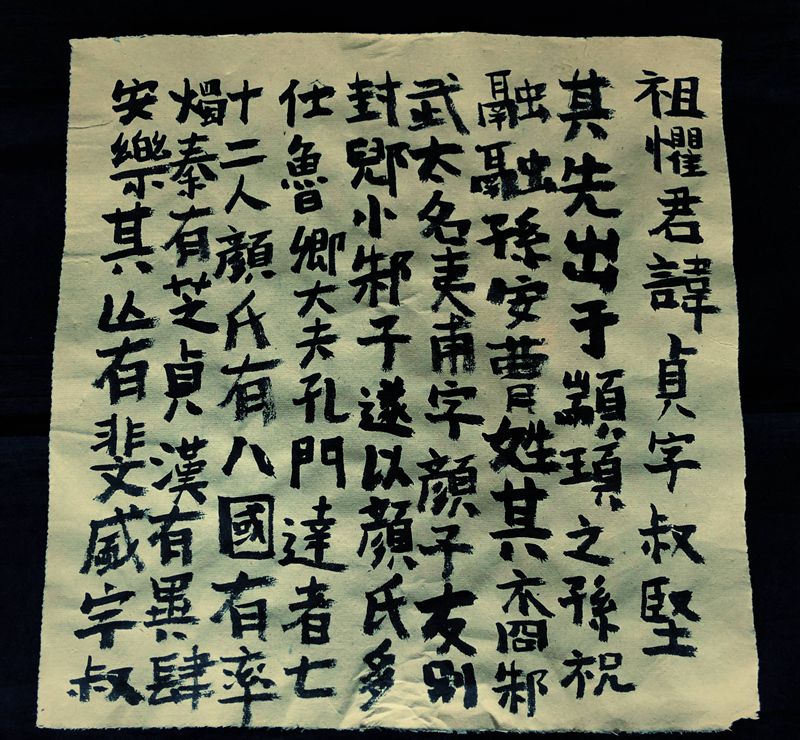 祖懼君諱貞字叔堅
其先出于顓頊之孫祝
融融孫安曹姓其裔邾
武太名夷甫字顏子友別
封郳小邾子遂以顏氏多
仕魯卿大夫孔門達者七
十二人顏氏有八國有率
燭秦有芝貞漢有異肆
安樂其有斐盛字叔